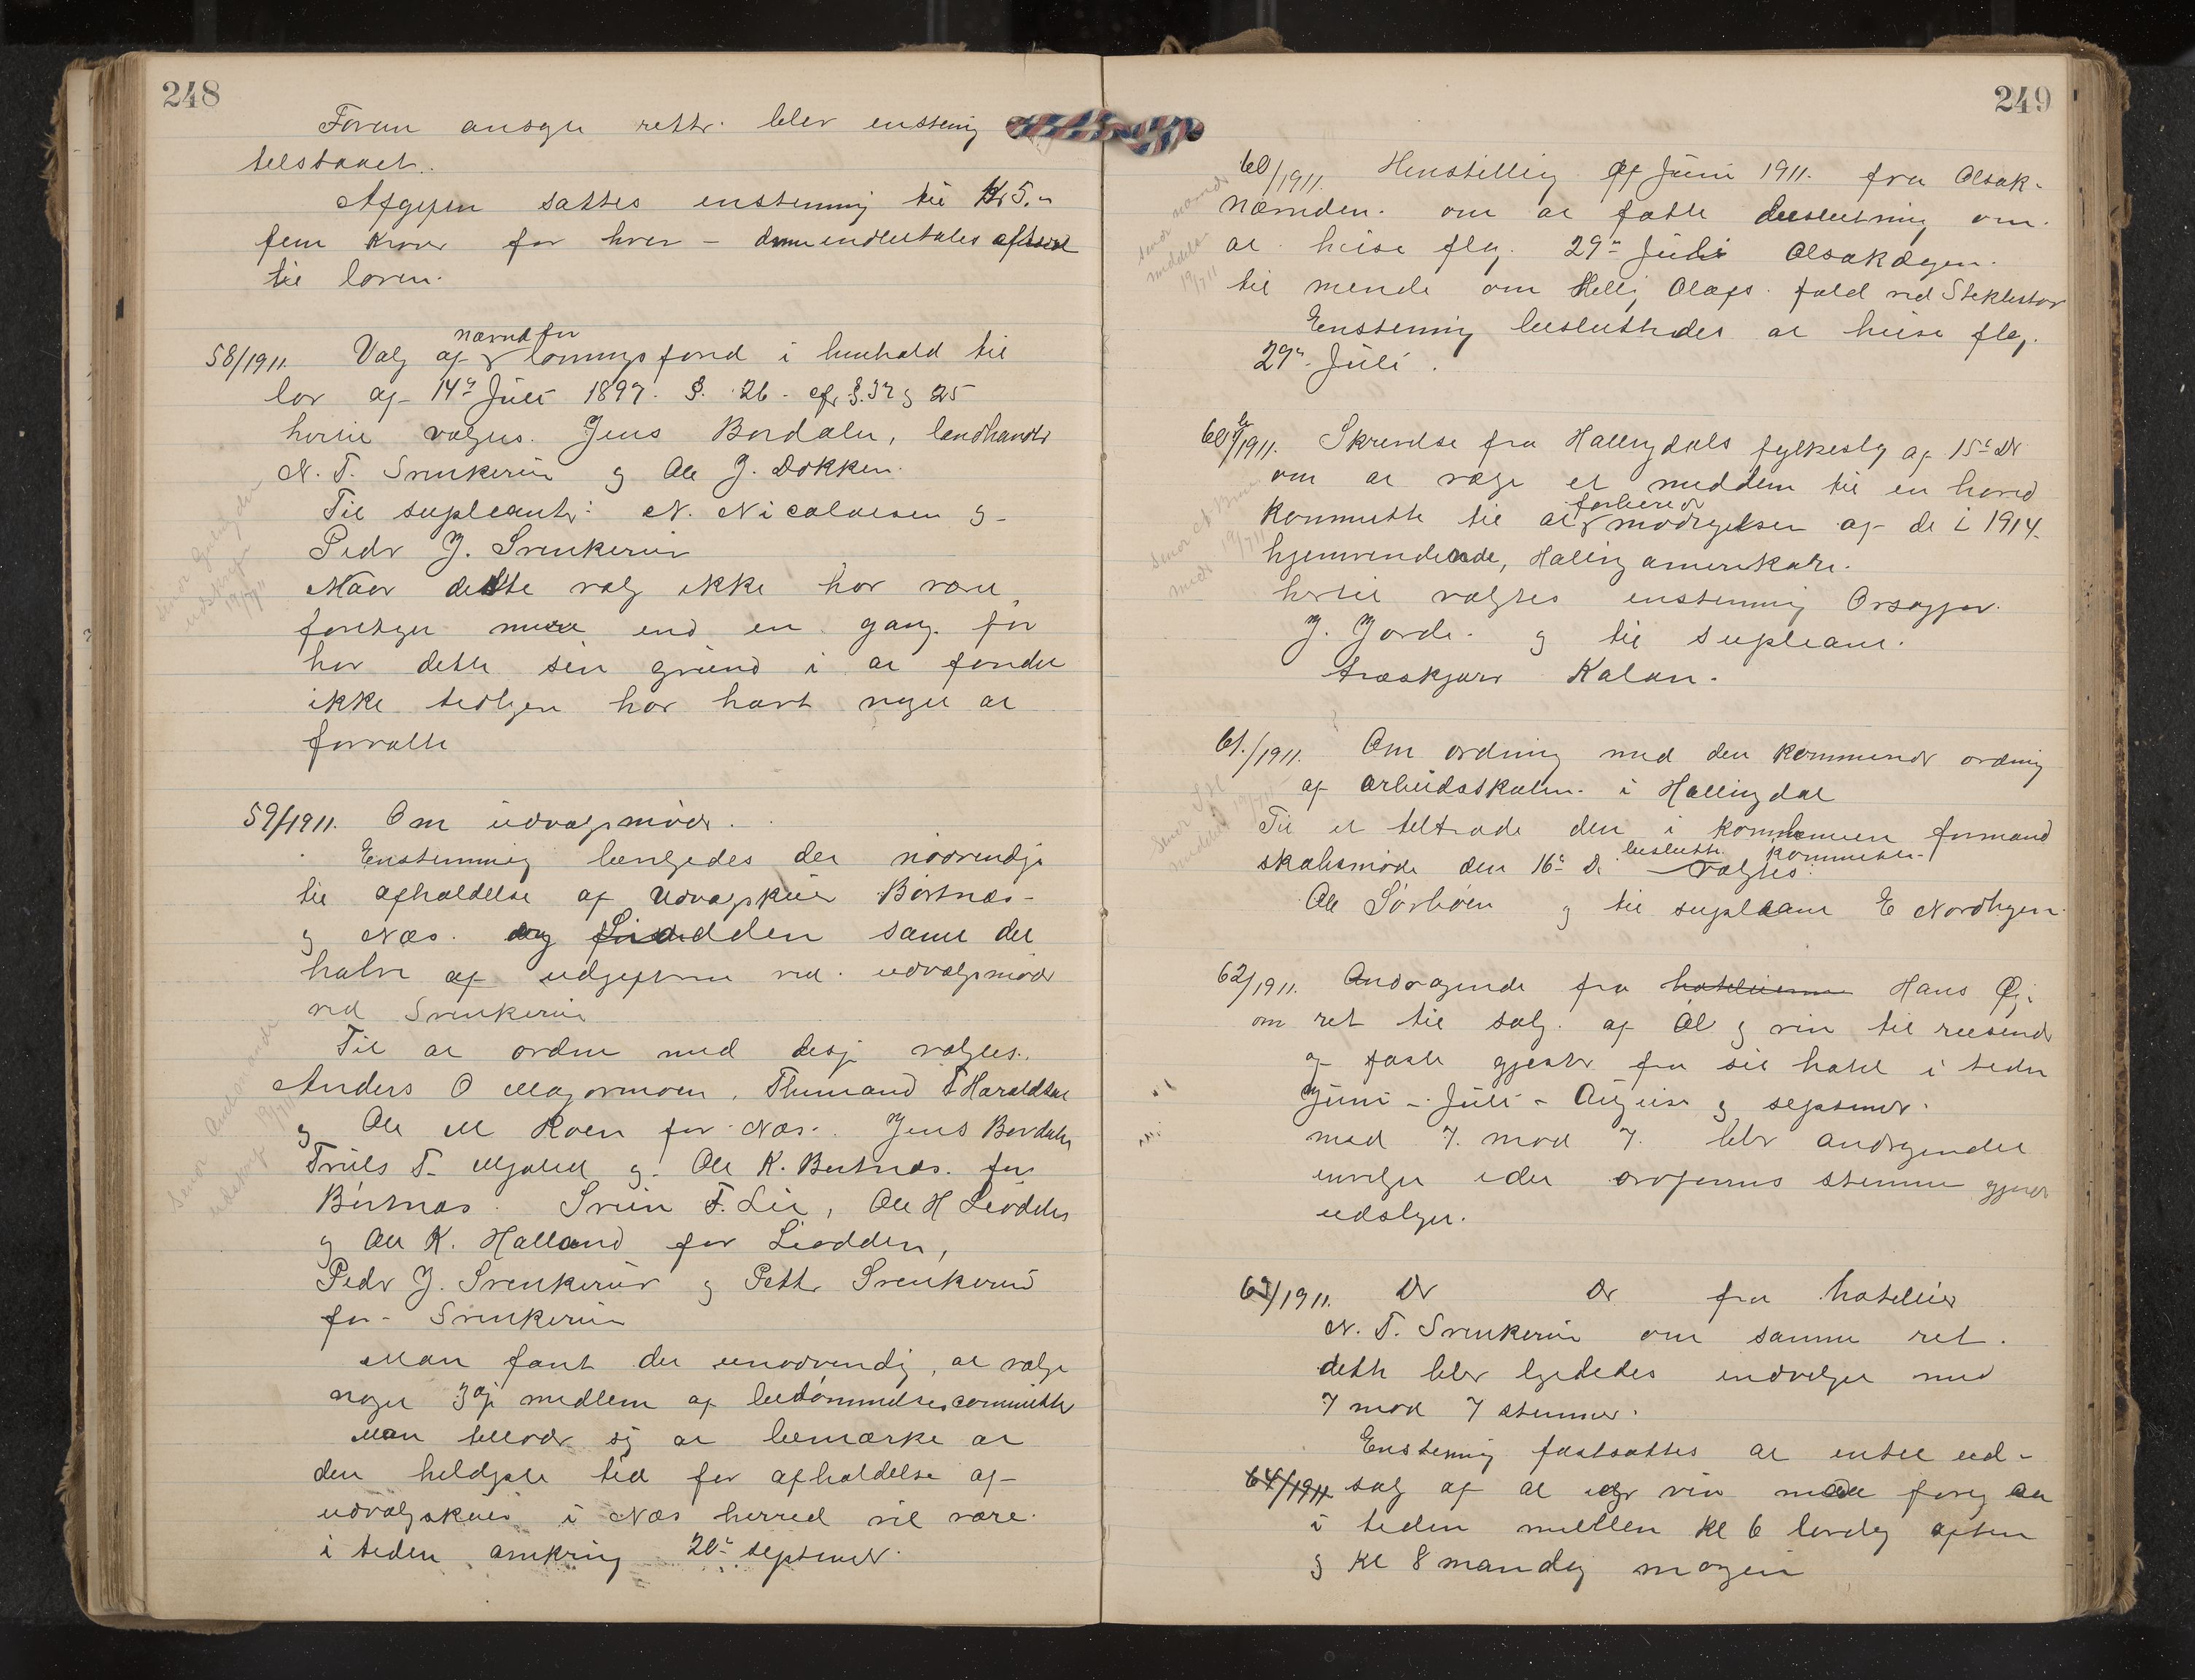 248
Foran ansøgte rettr. blev enstemig
tilstaaet.
Afgiften sattes enstemmig til Kr 5.-
fem Kroner for hver - denne indbetales
til loven.
58/1911. Valg af nævnd for lønningsfond i henhold til
lov af 14de Juli 1897. §. 26. cfr §. 32 og 25
hertil valgtes. Jens Bordalen, landhandlr
N. T. Svenkerud og Ole J. Dokken.
Til supleanter: N. Nicolaisen og
Peder J. Svenkerud
Naar dette valg ikke har været
foretaget mere end en gang før
har dette sin grund i at fondet
ikke tidligere har havt noget at
forvalte
59/1911. Om udvalgsmøder.
Enstemmig bevilgedes det nødvendige
til afholdelse af Udvalgskuer Børtnæs -
og Næs. og Liodden samt det
halve af udgifterne ved udvalgsmøde
ved Svenkerud
Til at ordne med disse valgtes.
Anders O Magormoen, Thurmand T Haraldset
og Ole M Roen for Næs. Jens Bordalen
Truls T. Mjølød og Ole K. Børtnæs. for
Børtnæs. Svein T. Lie, Ole H Liodden
og Ole K. Halland for Liodden,
Peder J. Svenkerud og Petter Svenkerud
for Svenkerud
Man fant det unødvendig, at vælge
noget 3dje medlem af bedømmelsescommitte
Man tillader sig at bemærke at
den heldigste tid for afholdelse af
udvalgskuer i Næs herred vil være
i tiden omkring 20de september.
249
60/1911. Henstilling af Juni 1911. fra Olsok-
nævnden. om at fatte beslutning om
at heise flag. 29de Juli Olsokdagen.
til minde om Hellig Olafs fald ved Stiklestad
Enstemmig besluttedes at heise flag.
29de Juli.
60b/1911. Skrivelse fra Hallingdals fylkeslag af 15de Ds
om at vælge et meddem til en hoved
Kommitte til at forberede modtagelsen af de i 1914.
hjemvendende, Halling amerikaner.
hertil valgtes enstemmig Ordfører.
J. Jorde. og til supleant.
træskjærer Kolan.
61./1911. Om ordning med den kommende ordning
af arbeidsskolen. i Hallingdal
Til at tiltræde den i kommunen formand
skabsmøde den 16de Ds. besluttede kommite valgtes:
Ole Sørbøen og til supleant E Nordbyen.
62/1911. Andragende fra hotelierne Hans Øi
om ret til salg. af Øl og vin til reisende
og faste gjester fra sit hotel i tiden
Juni - Juli - August og september.
med 7. mod 7. blev andragendet
innvilget idet ordførerens stemme gjorde
udslaget.
63/1911. Do Do fra hotelier
N. T. Svenkerud om samme ret.
dette blev ligeledes indvilget med
7 mod 7 stemmer.
Enstemmig fastsattes at intet ud-
64/1911 salg af øl eller vin maa foregaa
i tiden mellem kl 6 lørdag aften
og kl 8 mandag morgen